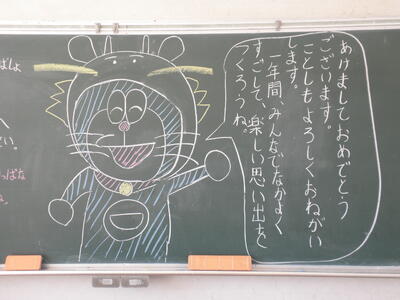 あけましておめでとう
ございます。
ことしもよろしくおねがい
します。
一年間、みんなでなかよく
すごして、楽しい思い出を
つくろうね。